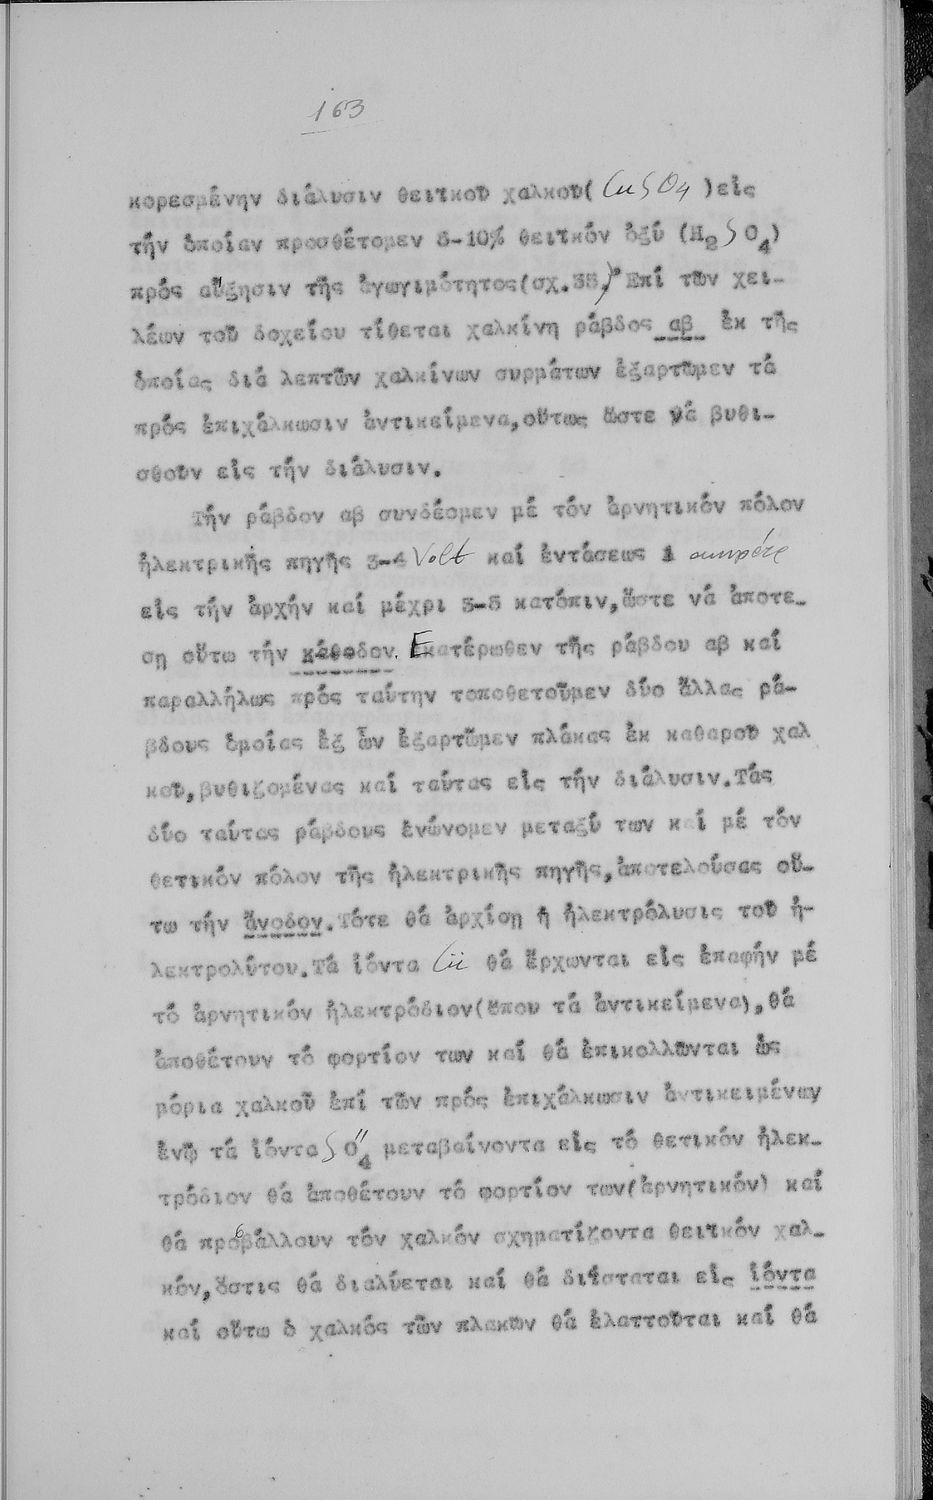 163
κορεσμένην διάλυσιν θειϊκοῦ χαλκοῦ( CuSO4 )εἰς
τήν ὁποίαν προσθέτομεν 8-10% θειϊκόν ὀξύ (H2SO4)
πρός αὔξησιν τῆς ἀγωγιμότητος(σχ.35). Ἐπί τῶν χει-
λέων τοῦ δοχείου τίθεται χαλκίνη ράβδος αβ ἐκ τῆς
ὁποίας διά λεπτῶν χαλκίνων συρμάτων ἐξαρτῶμεν τά
πρός ἐπιχάλκωσιν ἀντικείμενα,οὕτως ὥστε νά βυθι-
σθοῦν εἰς τήν διάλυσιν.
Τήν ράβδον αβ συνδέομεν μέ τόν ἀρνητικόν πόλον
ἠλεκτρικῆς πηγῆς 3-4 Volt καί ἐντάσεως 1 ampère
εἰς τήν ἀρχήν καί μέχρι 3-5 κατόπιν,ὥστε νά ἀποτε-
ση οὕτω τήν κάθοδον. Ἑκατέρωθεν τῆς ράβδου αβ καί
παραλλήλως πρός ταύτην τοποθετοῦμεν δύο ἄλλας ρά-
βδους ὁμοίας ἐξ ὧν ἐξαρτῶμεν πλάκας ἐκ καθαροῦ χαλ
κοῦ,βυθιζομένας καί ταύτας εἰς τήν διάλυσιν.Τάς
δύο ταύτας ράβδους ἑνώνομεν μεταξύ των καί μέ τόν
θετικόν πόλον τῆς ἠλεκτρικῆς πηγῆς,ἀποτελούσας οὕ-
τω τήν ἄνοδον.Τότε θά ἀρχίση ἡ ἠλεκτρόλυσις τοῦ ἠ-
λεκτρολύτου.Τά ἰόντα Cu θά ἔρχωνται εἰς ἐπαφήν μέ
τό ἀρνητικόν ἠλεκτρόδιον(ὅπου τά ἀντικείμενα),θά
ἀποθέτουν τό φορτίον των καί θά ἐπικολλῶνται ὡς
μόρια χαλκοῦ ἐπί τῶν πρός ἐπιχάλκωσιν ἀντικειμένων
ἐνῷ τά ἰόντα SO4'' μεταβαίνοντα εἰς τό θετικόν ἠλεκ-
τρόδιον θά ἀποθέτουν τό φορτίον των(ἀρνητικόν) καί
θά προσβάλλουν τόν χαλκόν σχηματίζοντα θειϊκόν χαλ-
κόν,ὅστις θά διαλύεται καί θά διΐσταται εἰς ἰόντα
καί οὕτω ὁ χαλκός τῶν πλακῶν θά ἐλαττοῦται καί θά